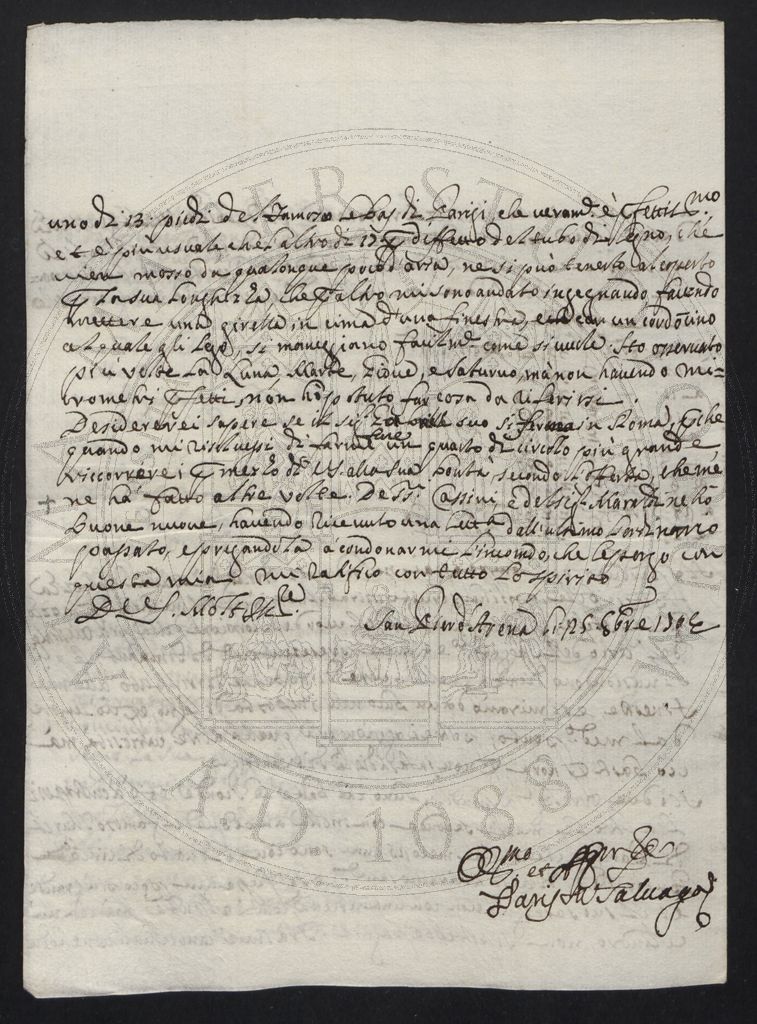 uno di 13. piedi del famoso Le bas di Parigi, e la veram.te è perfettiss.mo
et è più usuale che l'altro di 17 per diffetto del tubo di legno, che
vien mosso da qualonque poco d'aria, ne si può tenerlo al coperto
per la sua longhezza, che per altro mi sono andato ingegnando, facendo
mettere una giretta in cima d'una finestra, e con un cordoncino
al quale gli lego, si maneggiano facilm.te come si vuole. Ho osservato
più volte la Luna, Marte, Giove, e Saturno, ma non havendo mi=
crometri perfetti, non ho potuto far cosa da riferirsi.
Desidererei sapere se il sig.r suo si ferma in Roma, perche
quando mi risolvessi di farne fare un quarto di circolo più grande
riccorrerei per mezzo di V.S. alla sua bontà, secondo l'offerta, che me
ne ha fatto altre volte. De SS.ri Cassini, e del sig.r Maraldi ne hò
buone nuove, havendo ricevuto una lett.a dall'ultimo l'ordinario
passato, e pregandola à condonarmi l'incomodo, che le porgo con
questa mia mi ratifico con tutto lo spirito
Di V.S. Molt' Ill.re
San Pier d'Arena li 25 8bre 1702
Dev.mo et Obl.mo Ser.re
Paris M.a Salvago